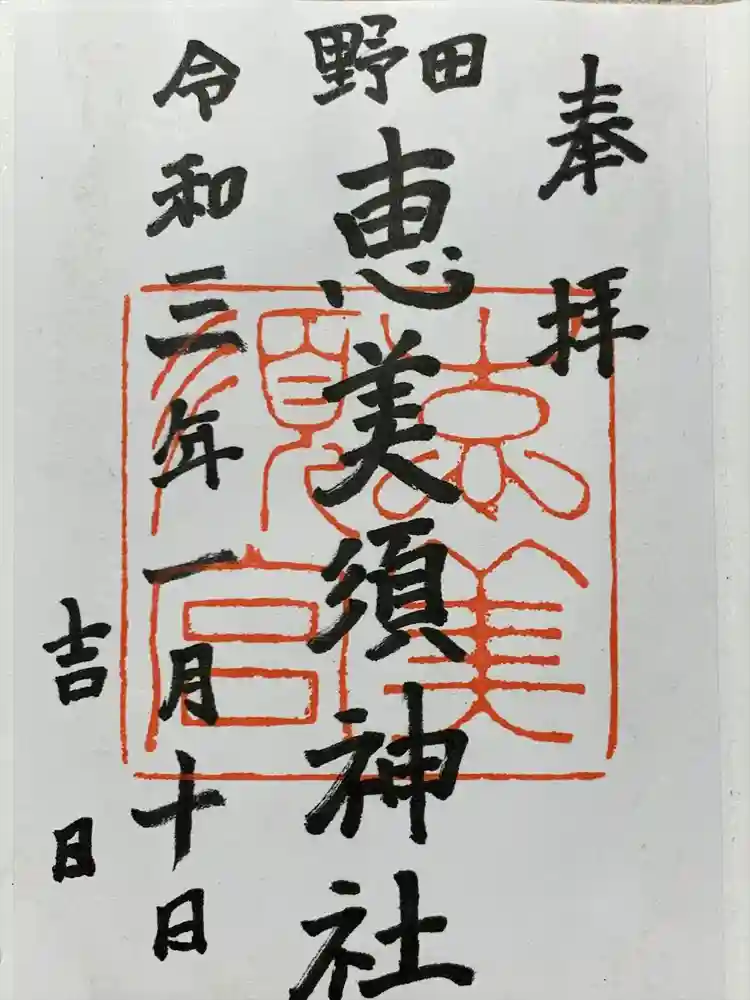 奉拝
野田
恵美須神社
令和三年一月十日
吉日
恵美
須宮